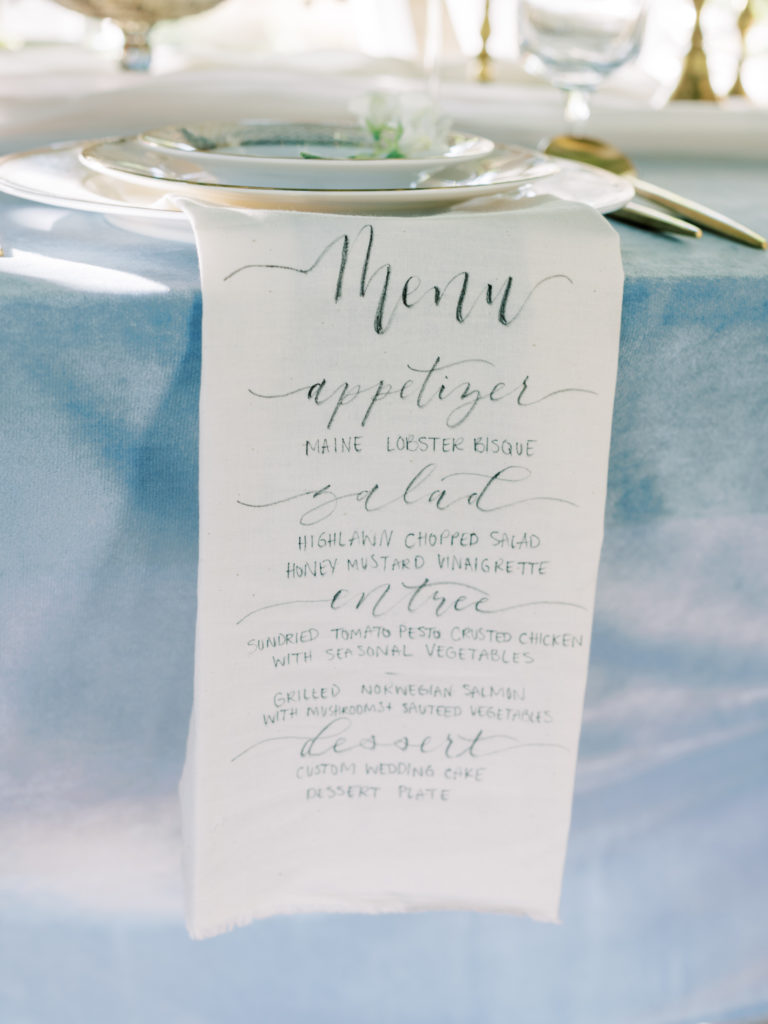 Menu
appetizer
MAINE LOBSTER BISQUE
salad
HIGHLAWN CHOPPED SALAD
HONEY MUSTARD VINAIGRETTE
entree
SUNDRIED TOMATO PESTO CRUSTED CHICKEN
WITH SEASONAL VEGETABLES
–
GRILLED NORWEGIAN SALMON
WITH MUSHROOMS + SAUTEED VEGETABLES
dessert
CUSTOM WEDDING CAKE
DESSERT PLATE